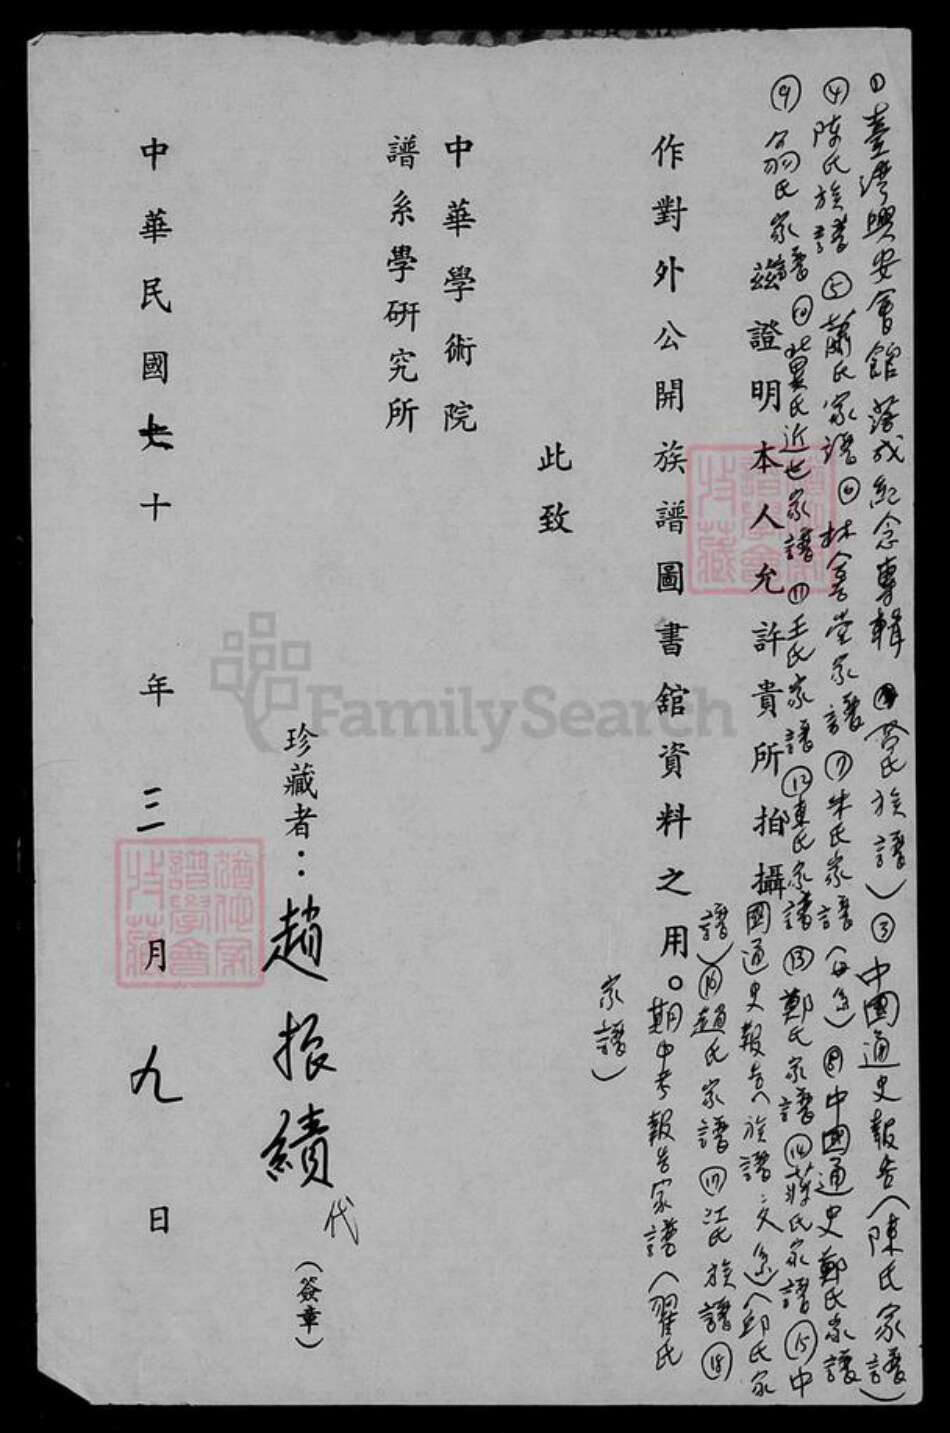 ①臺灣興安會館落成紀念專輯 ②黃氏族譜）③中國通史報告（陳氏家譜）
④陳氏族譜 ⑤蕭氏家譜 ⑥林善堂家譜 ⑦朱氏家譜（母系）⑧中國通史鄭氏家譜
⑨翁氏家譜 ⑩冀氏近世家譜 ⑪王氏家譜 ⑫車氏家譜 ⑬鄭氏家譜 ⑭蔣氏家譜 ⑮中
國通史報告（族譜文系）（邱氏家
譜）⑯趙氏家譜 ⑰江氏族譜 ⑱
期中考報告家譜（翟氏
家譜）
茲證明本人允許貴所拍攝
作對外公開族譜圖書館資料之用。
此致
中華學術院
譜系學研究所
珍藏者：趙振績代（簽章）
中華民國七十 年 三 月 九 日
FamilySearch